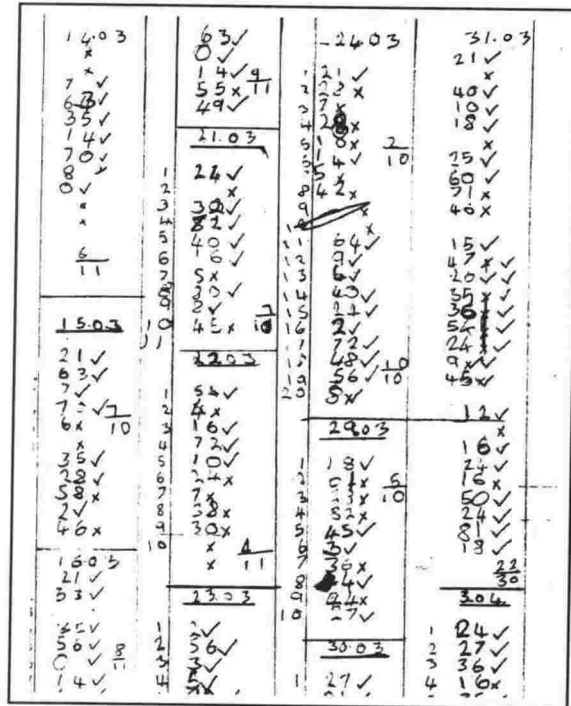 14.03
x
x
7 ✓
35 ✓
14 ✓
70 ✓
8 x
0 ✓
x
x
6/11
15.03
21 ✓
63 ✓
7 ✓
7/10
6 x
x
35 ✓
28 ✓
58 x
2 ✓
46 x
16.03
21 ✓
33 ✓
56 ✓
8/11
0 ✓
14 ✓
63 ✓
0 ✓
14 ✓
9/11
55 x
49 ✓
21.03
1 24 ✓
2 x
3
4 82 ✓
5 40 ✓
6 16 ✓
7 5 x
8 30 ✓
9 2 ✓
7/10
10 45 x
11
22.03
1 54 ✓
2 4 x
3 16 ✓
4 72 ✓
5 10 ✓
6 24 x
7 7 x
8 38 x
9 30 x
10 x
x
4/11
23.03
1
2 56 ✓
3 3 ✓
4
24.03
1 21 ✓
2 23 x
3 7 x
4
5
2/10
4 ✓
5 x
8 42 x
9 x
x
11 64 ✓
12 9 ✓
13 6 ✓
14 40 ✓
15 24 ✓
16 2 ✓
17 72 ✓
18 48 ✓
10/10
19 56 ✓
20 5 x
29.03
1 18 ✓
2
5/10
3
4 32 x
5 45 ✓
6 3 ✓
7 36 x
8
9
10
30.03
1 27 ✓
31.03
21 ✓
x
40 ✓
10 ✓
18 ✓
x
25 ✓
60 ✓
71 x
40 x
15 ✓
47 x ✓
20 ✓ ✓
35
36
54
24
9 x ✓
45
12 ✓
x
16 ✓
24 ✓
16 x
50 ✓
24 ✓
81 ✓
18 ✓
22/30
3.04
1 24 ✓
2 27 ✓
3 36 ✓
4 16 x